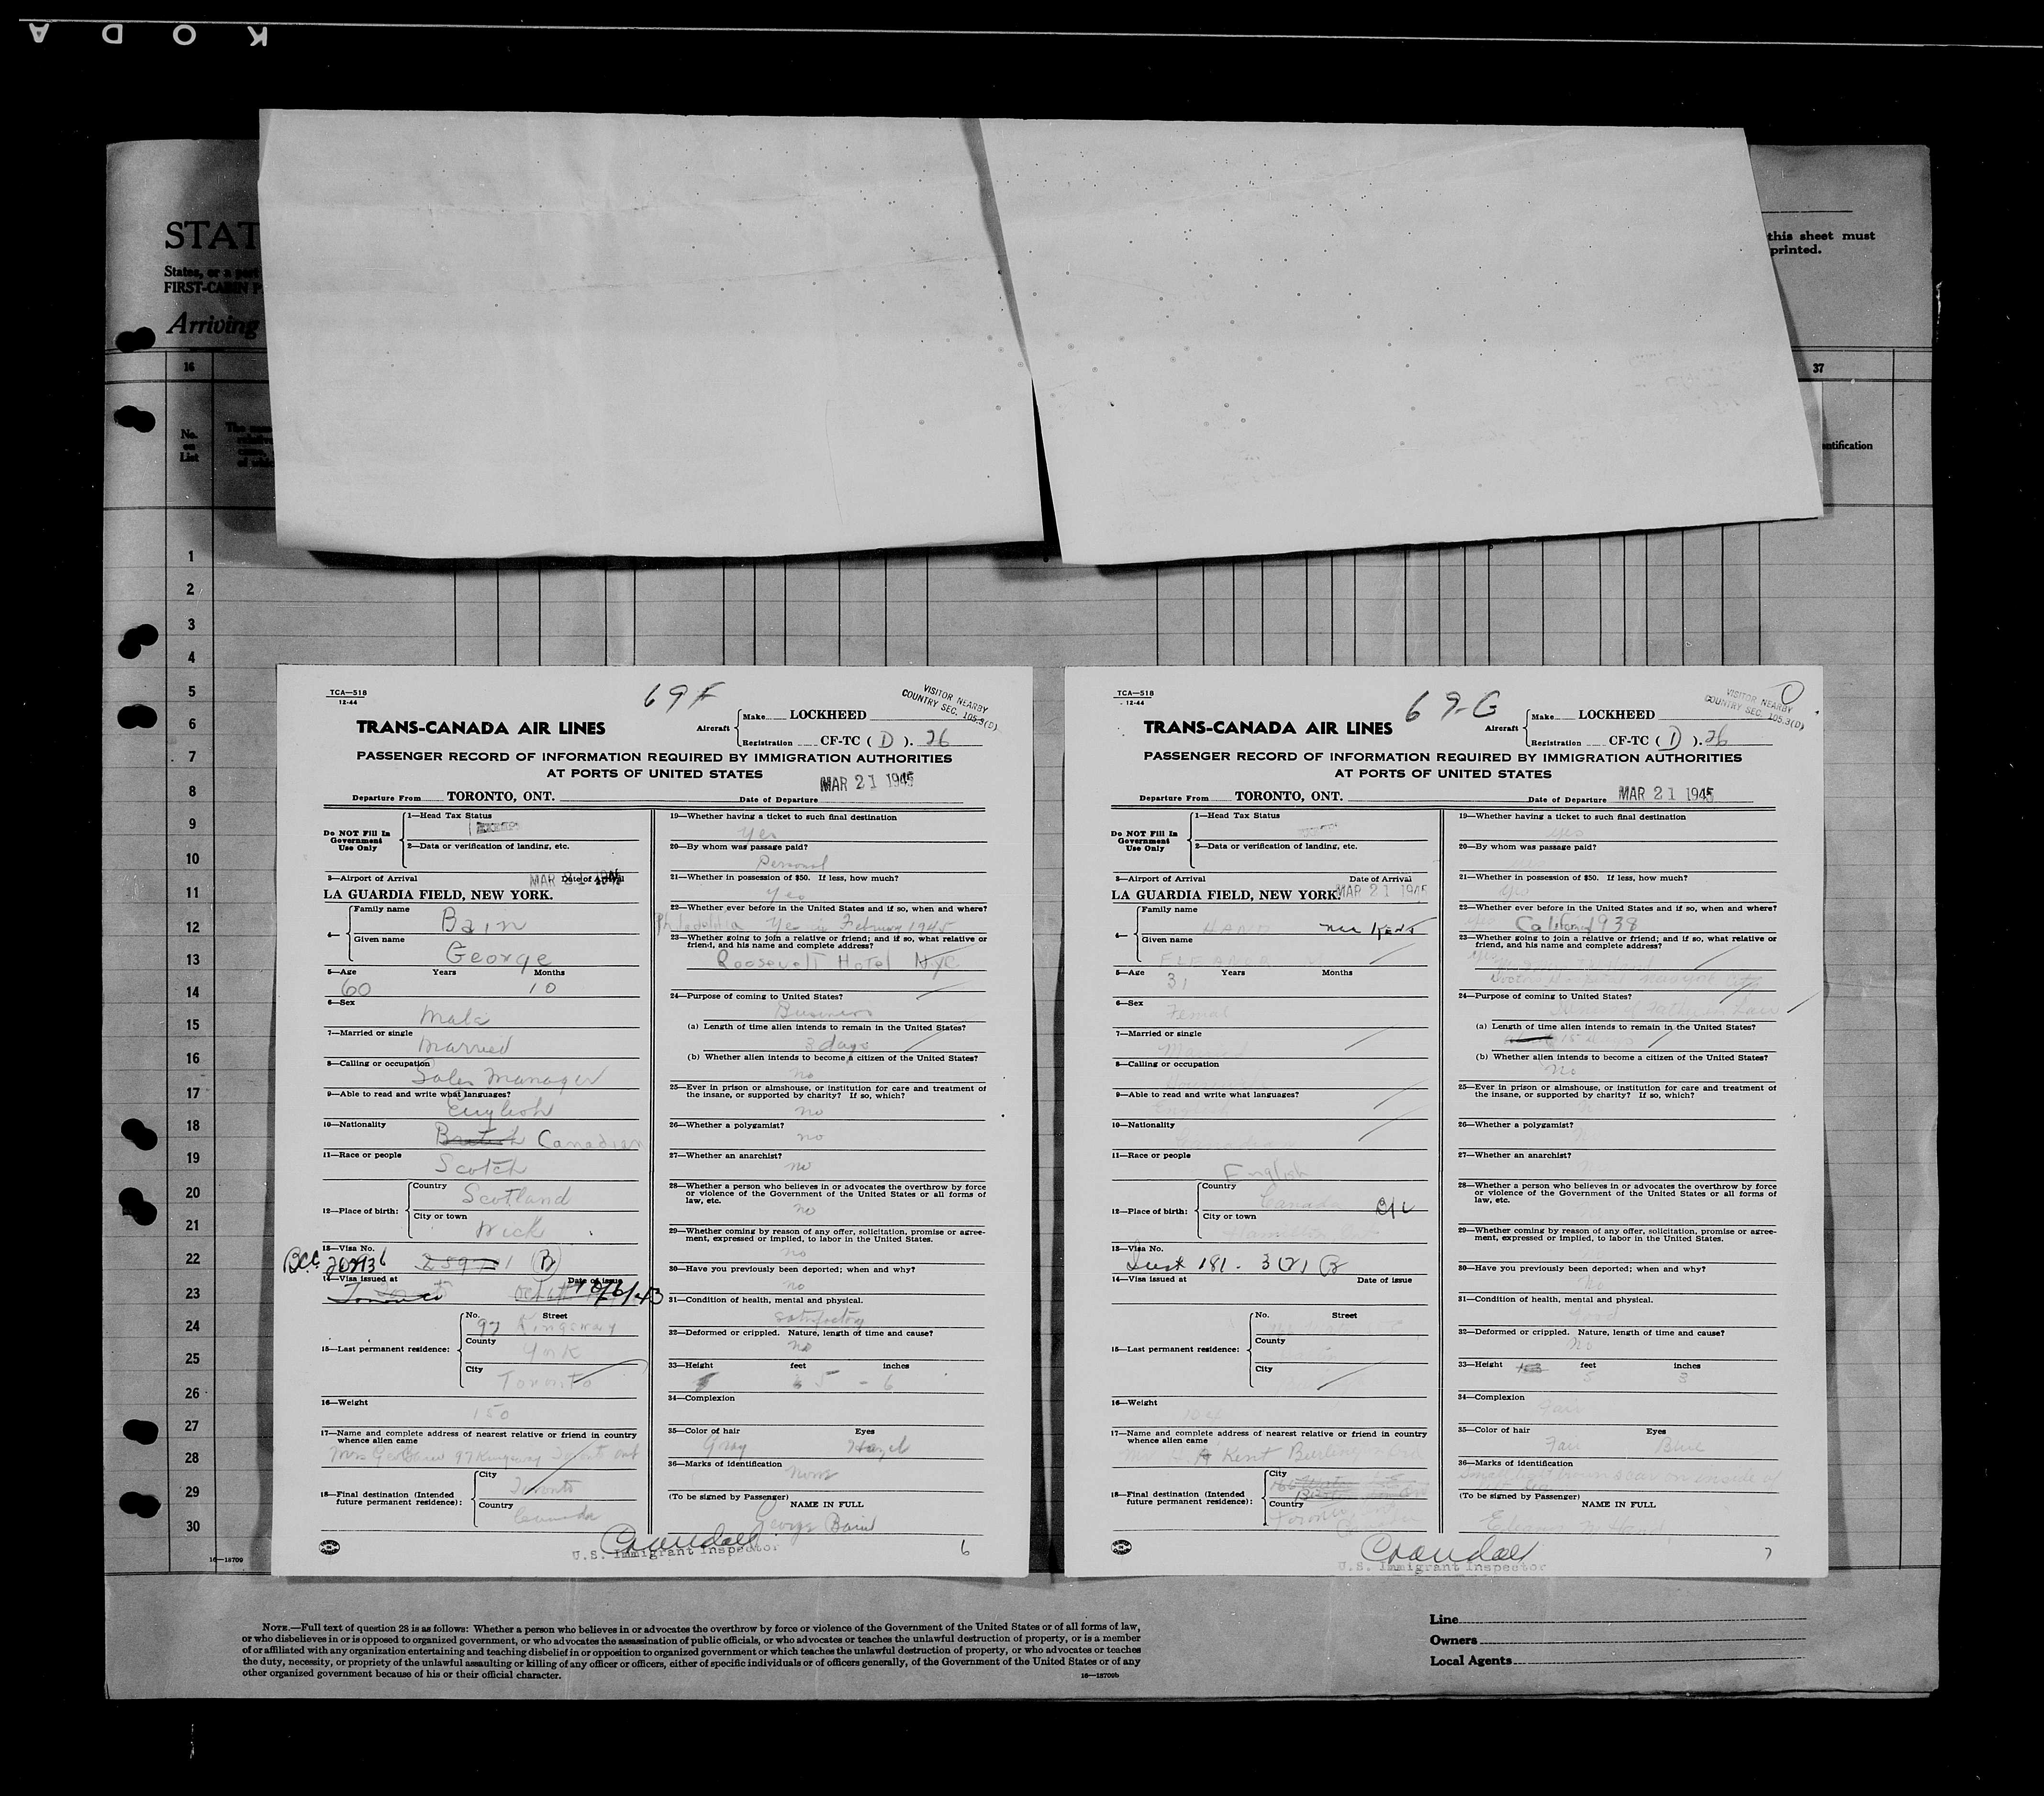 KODA
STAT
States, or a port
FIRST-CABIN P
Arriving
this sheet must
printed.
16
37
No.
on
List
ntification
1
2
3
4
5
6
7
8
9
10
11
12
13
14
15
16
17
18
19
20
21
22
23
24
25
26
27
28
29
30
16—18709
TCA—518
12-44
69F
VISITOR NEARBY
COUNTRY SEC. 105.3(D)
TRANS-CANADA AIR LINES
Aircraft
Make LOCKHEED
Registration CF-TC ( D ). 26
PASSENGER RECORD OF INFORMATION REQUIRED BY IMMIGRATION AUTHORITIES
AT PORTS OF UNITED STATES
MAR 21 1945
Departure From TORONTO, ONT. Date of Departure
Do NOT Fill In
Government
Use Only
1—Head Tax Status
2—Data or verification of landing, etc.
3—Airport of Arrival Date of Arrival
MAR 21 1945
LA GUARDIA FIELD, NEW YORK.
4—
Family name
Bain
Given name
George
5—Age Years Months
60 10
6—Sex
Male
7—Married or single
Married
8—Calling or occupation
Sales Manager
9—Able to read and write what languages?
English
10—Nationality
British Canadian
11—Race or people
Scotch
12—Place of birth:
Country
Scotland
City or town
Wick
13—Visa No.
(B)
14—Visa issued at Date of issue
Toronto
15—Last permanent residence:
No. Street
97 Kingsway
County
York
City
Toronto
16—Weight
150
17—Name and complete address of nearest relative or friend in country
whence alien came
Mrs Geo Bain 97 Kingsway Toronto Ont
18—Final destination (Intended
future permanent residence):
City
Toronto
Country
Canada
19—Whether having a ticket to such final destination
Yes
20—By whom was passage paid?
Personal
21—Whether in possession of $50. If less, how much?
Yes
22—Whether ever before in the United States and if so, when and where?
Philadelphia Yes in February 1945
23—Whether going to join a relative or friend; and if so, what relative or
friend, and his name and complete address?
Roosevelt Hotel NYC
24—Purpose of coming to United States?
Business
(a) Length of time alien intends to remain in the United States?
3 days
(b) Whether alien intends to become a citizen of the United States?
no
25—Ever in prison or almshouse, or institution for care and treatment of
the insane, or supported by charity? If so, which?
no
26—Whether a polygamist?
no
27—Whether an anarchist?
no
28—Whether a person who believes in or advocates the overthrow by force
or violence of the Government of the United States or all forms of
law, etc.
no
29—Whether coming by reason of any offer, solicitation, promise or agree-
ment, expressed or implied, to labor in the United States.
no
30—Have you previously been deported; when and why?
no
31—Condition of health, mental and physical.
Satisfactory
32—Deformed or crippled. Nature, length of time and cause?
No
33—Height feet inches
5 - 6
34—Complexion
35—Color of hair Eyes
Gray Hazel
36—Marks of identification
None
(To be signed by Passenger)
NAME IN FULL
George Bain
Crandall
U.S. Immigrant Inspector
6
TCA—518
12-44
69-G
VISITOR NEARBY
COUNTRY SEC. 105.3(D)
TRANS-CANADA AIR LINES
Aircraft
Make LOCKHEED
Registration CF-TC ( D ). 26
PASSENGER RECORD OF INFORMATION REQUIRED BY IMMIGRATION AUTHORITIES
AT PORTS OF UNITED STATES
Departure From TORONTO, ONT. Date of Departure MAR 21 1945
Do NOT Fill In
Government
Use Only
1—Head Tax Status
2—Data or verification of landing, etc.
3—Airport of Arrival Date of Arrival
LA GUARDIA FIELD, NEW YORK. MAR 21 1945
4—
Family name
HAND nee Kent
Given name
ELEANOR
5—Age Years Months
31
6—Sex
Female
7—Married or single
Married
8—Calling or occupation
9—Able to read and write what languages?
English
10—Nationality
Canadian
11—Race or people
English
12—Place of birth:
Country
Canada
City or town
Hamilton
13—Visa No.
14—Visa issued at Date of issue
15—Last permanent residence:
No. Street
County
City
16—Weight
104
17—Name and complete address of nearest relative or friend in country
whence alien came
Kent Burlington Ont
18—Final destination (Intended
future permanent residence):
City
Country
Toronto
19—Whether having a ticket to such final destination
yes
20—By whom was passage paid?
21—Whether in possession of $50. If less, how much?
yes
22—Whether ever before in the United States and if so, when and where?
yes California 1938
23—Whether going to join a relative or friend; and if so, what relative or
friend, and his name and complete address?
yes
24—Purpose of coming to United States?
Father in Law
(a) Length of time alien intends to remain in the United States?
15 days
(b) Whether alien intends to become a citizen of the United States?
No
25—Ever in prison or almshouse, or institution for care and treatment of
the insane, or supported by charity? If so, which?
26—Whether a polygamist?
27—Whether an anarchist?
28—Whether a person who believes in or advocates the overthrow by force
or violence of the Government of the United States or all forms of
law, etc.
29—Whether coming by reason of any offer, solicitation, promise or agree-
ment, expressed or implied, to labor in the United States.
30—Have you previously been deported; when and why?
No
31—Condition of health, mental and physical.
Good
32—Deformed or crippled. Nature, length of time and cause?
No
33—Height feet inches
5 3
34—Complexion
Fair
35—Color of hair Eyes
Fair Blue
36—Marks of identification
Small brown scar on inside of
(To be signed by Passenger)
NAME IN FULL
Eleanor Hand
Crandall
U.S. Immigrant Inspector
7
NOTE.—Full text of question 28 is as follows: Whether a person who believes in or advocates the overthrow by force or violence of the Government of the United States or of all forms of law,
or who disbelieves in or is opposed to organized government, or who advocates the assassination of public officials, or who advocates or teaches the unlawful destruction of property, or is a member
of or affiliated with any organization entertaining and teaching disbelief in or opposition to organized government or which teaches the unlawful destruction of property, or who advocates or teaches
the duty, necessity, or propriety of the unlawful assaulting or killing of any officer or officers, either of specific individuals or of officers generally, of the Government of the United States or of any
other organized government because of his or their official character.
16—18709b
Line
Owners
Local Agents